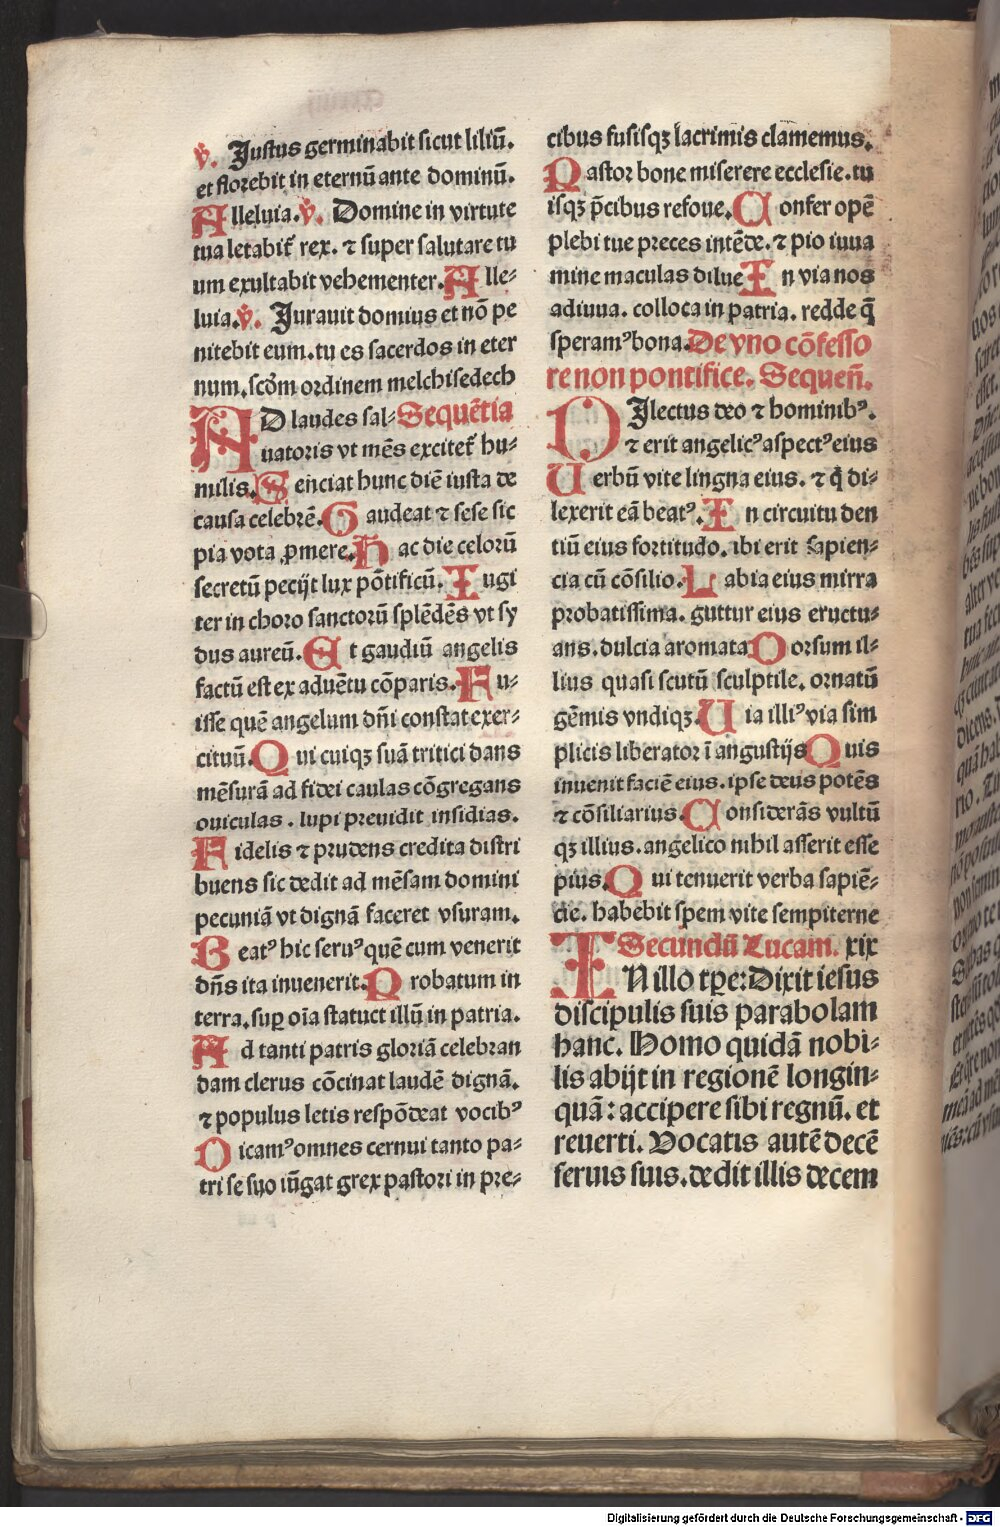 v̄. Justus germinabit sicut liliū.
et florebit in eternū ante dominū.
Alleluia. v̄. Domine in virtute
tua letabit᷑ rex. ⁊ super salutare tu
um exultabit vehementer. Alle⸗
luia. v̄. Jurauit domius et nō pe
nitebit eum. tu es sacerdos in eter
num. scd̄m ordinem melchisedech
AD laudes sal⸗ Sequētia
uatoris vt mēs excitet᷑ hu⸗
milis. Senciat hunc diē iusta de
causa celebrē. Gaudeat ⁊ sese sic
pia vota ꝓmere. Hac die celorū
secretū pecijt lux pōtificū. Iugi
ter in choro sanctorū splēdēs vt sy
dus aureū. Et gaudiū angelis
factū est ex aduētu cōparis. Fu⸗
isse quē angelum dn̄i constat exer⸗
cituū. Qui cuiqꝫ suā tritici dans
mēsurā ad fidei caulas cōgregans
ouiculas. lupi preuidit insidias.
Fidelis ⁊ prudens credita distri
buens sic dedit ad mēsam domini
pecuniā vt dignā faceret vsuram.
Beatꝰ hic seruꝰ quē cum venerit
dn̄s ita inuenerit. Probatum in
terra. suꝑ oīa statuct illū in patria.
Ad tanti patris gloriā celebran
dam clerus cōcinat laudē dignā.
⁊ populus letis respōdeat vocibꝰ
Dicamꝰ omnes cernui tanto pa⸗
tri se suo iūgat grex pastori in pre⸗
cibus fusisqꝫ lacrimis clamemus.
Pastor bone miserere ecclesie. tu
isqꝫ p̄cibus refoue. Confer opē
plebi tue preces intēde. ⁊ pio iuua
mine maculas dilue In via nos
adiuua. colloca in patria. redde q̄
speramꝰ bona. De vno cōfesso
re non pontifice. Sequen̄.
DIlectus deo ⁊ hominibꝰ.
⁊ erit angelicꝰ aspectꝰ eius
Uerbū vite lingna eius. ⁊ q̇ di⸗
lexerit eā beatꝰ. In circuitu den
tiū eius fortitudo. ibi erit sapien⸗
cia cū cōsilio. Labia eius mirra
probatissima. guttur eius eructu⸗
ans. dulcia aromata Dorsum il⸗
lius quasi scutū sculptile. ornatū
gēmis vndiqꝫ. Uia illiꝰ via sim
plicis liberator ī angustijs Quis
inuenit faciē eius. ipse deus potēs
⁊ cōsiliarius. Considerās vultū
qꝫ illius. angelico nihil asserit esse
pius. Qui tenuerit verba sapiē⸗
cie. habebit spem vite sempiterne
Secundū Lucam. xix
IN illo tꝑe: Dixit iesus
discipulis suis parabolam
hanc. Homo quidā nobi⸗
lis abijt in regionē longin⸗
quā: accipere sibi regnū. et
reuerti. Vocatis autē decē
seruis suis. dedit illis decem
Digitalisierung gefördert durch die Deutsche Forschungsgemeinschaft - DFG